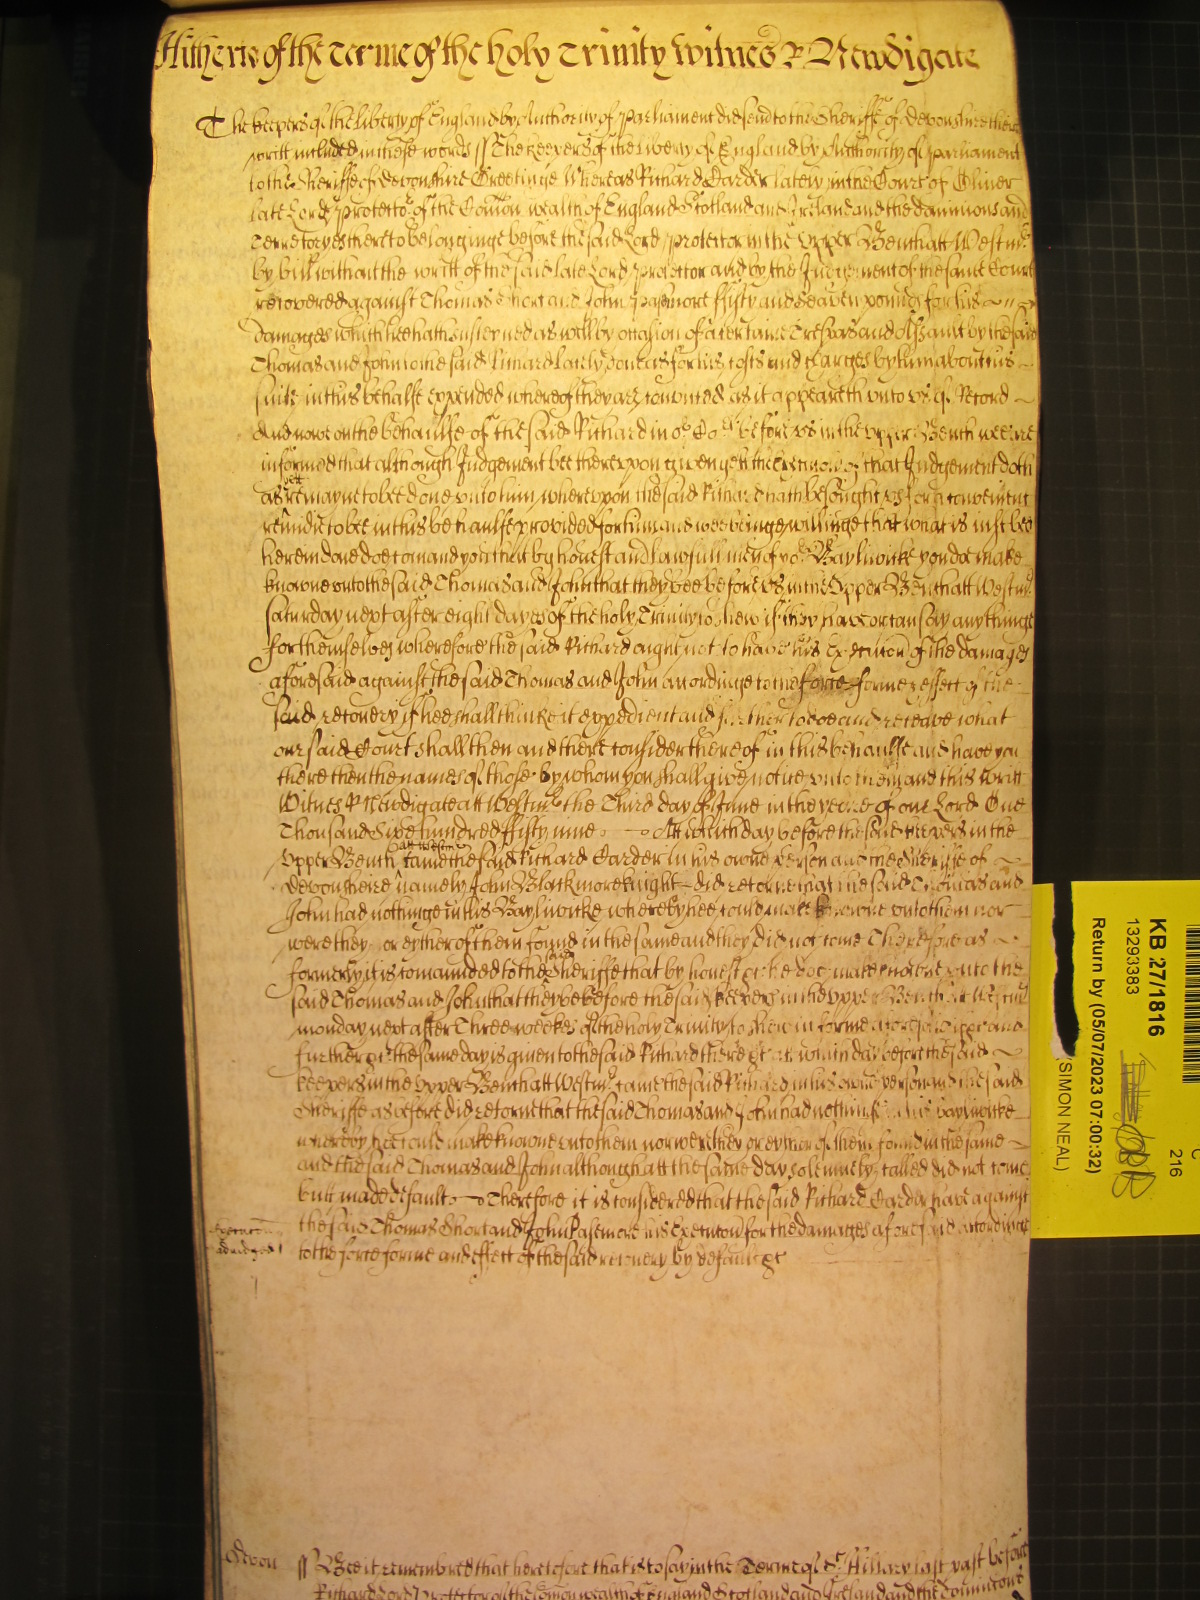 Hitherto of the Terme of the holy Trinity Witnes R Newdigate
The keepers of the liberty of England by Authority of Parliament did send to the Sheriffe of Devonshire there
writt included in these words ss The keepers of the liberty of England by Authority of Parliament
to the Sheriffe of Devonshire Greetinge Whereas Richard Carder lately in the Court of Oliver
late Lord Protector of the Comon wealth of England Scotland and Ireland and the dominions and
Terretoryes thereto belonginge before the said Lord Protector in the Upper Bench att Westmr
by bill without the writt of the said late Lord Protector and by the Judgement of the same Court
recovered against Thomas Short and John Pasmore ffifty and Seaven pounds for his
damages which hee hath susteyned as well by occasion of a certaine Trespas and Assault by the said
Thomas and John to the said Richard lately done as for his costs and charges by him about his
suite in this behalfe expended whereof they are convicted as it appeareth unto us of Record
And nowe on the behaulfe of the said Richard in or Cort before us in the upper Bench wee are
informed that although Judgement bee thereupon given yett the Execucon of that Judgement doth
as yett remayne to bee done unto him whereupon the said Richard hath besought us for a convenient
remidie to bee in this behaulfe provided for him and wee beinge willinge that what is just bee
herein done doe comand you that by honest and lawfull men of yor Baylywicke you doe make
knowne unto the said Thomas and John that they bee before us in the Upper Bench att Westmr
Saturday next after eight dayes of the holy Trinity to shew if they have or can say any thinge
for themselves wherefore the said Richard ought not to have his Execution of the damages
aforesaid against the said Thomas and John accordinge to the force forme & effect of the
said recovery if hee shall thinke it expedient and further to doe and receave what
our said Court shall then and there consider thereof in this behaulfe and have you
there then the names of those by whom you shall give notice unto them and this writt
Witnes R Newdigate att Westmr the Third day of June in the yeare of our Lord One
Thousand Sixe hundred ffifty nine At which day before the said keepers in the
Upper Bench att Westmr came the said Richard Carder in his owne person and the Sheriffe of
Devonsheire namely John Blackmore knight did retorne that the said Thomas and
John had nothinge in his Baylywicke whereby hee could make knowne unto them nor
were they or eyther of them found in the same and they did not come Therefore as
formerly it is comanded to the said Sheriffe that by honest &c hee doe make knowne unto the
said Thomas and John that they be before the said keepers in the Upper Bench att Westmr
monday next after Three weekes of the holy Trinity to shew in forme aforesaid if &c and
further &c the same day is given to the said Richard there &c att which day before the said
keepers in the Upper Bench att Westmr came the said Richard in his owne person and the said
Sheriffe as before did retorne that the said Thomas and John had nothinge in his baylywicke
whereby hee could make knowne unto them nor were they or eyther of them found in the same
and the said Thomas and John although att the same day solemnely called did not come
but made default Therefore it is considered that the said Richard Carder have against
Execucon
adiudged
the said Thomas Short and John Pasemore his Execucon for the damages aforesaid accordinge
to the force forme and effect of the said recovery by default &c
Devon ss Bee it remembred that heretofore that is to say in the Terme of St Hillary last past before
Richard Lord Protector of the Comon wealth of England Scotland and Ireland and the Dominions
KB 27/1816
13293383
Return by (05/07/2023 07:00:32)
(SIMON NEAL)
216